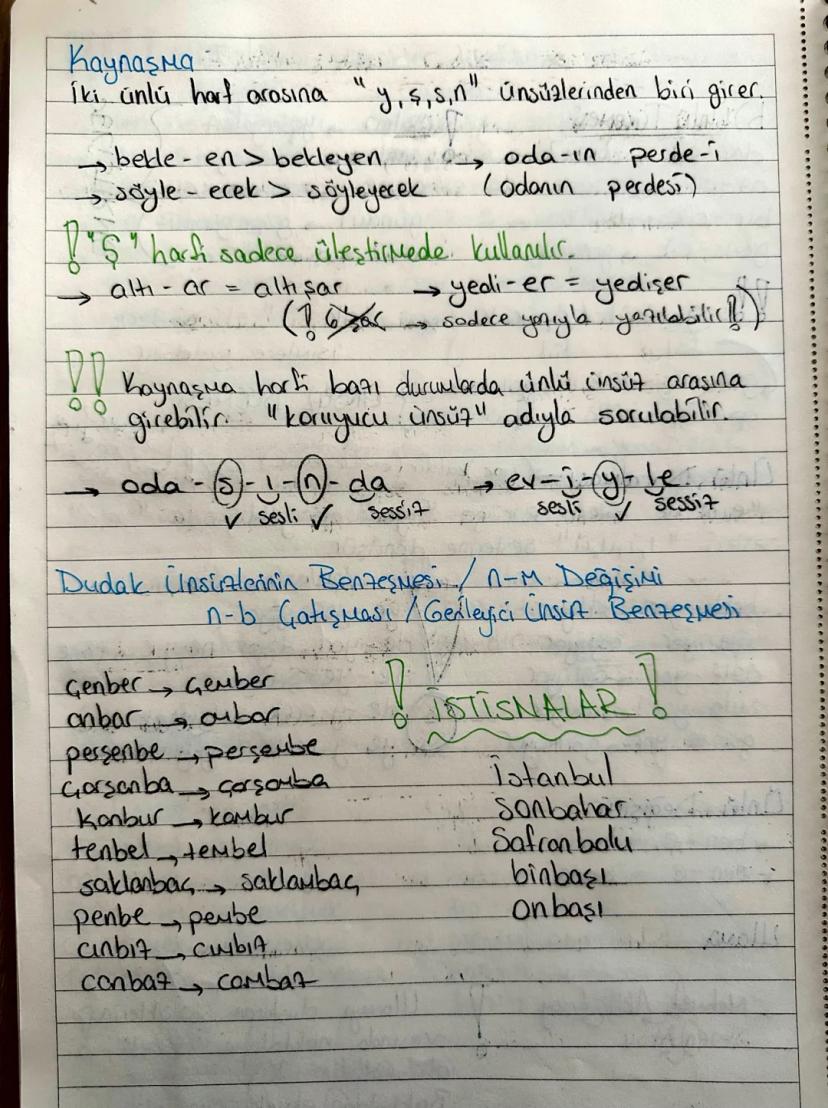 Kaynaşma
İki ünlü harf arasına "y, ş, s, n" ünsüzlerinden biri girer.
→ bekle - en > bekleyen → oda-ın perde-i
→ söyle - ecek > söyleyecek (odanın perdesi)
! "Ş" harfi sadece üleştirmede kullanılır.
→ altı - ar = altışar → yedi-er = yedişer
(! 6şar → sadece yazıyla yazılabilir!)
!! Kaynaşma harfi bazı durumlarda ünlü ünsüz arasına
girebilir. "koruyucu ünsüz" adıyla sorulabilir.
→ oda - s - ı - n - da → ev - i - y - le
✓ sesli ✓ sessiz sesli ✓ sessiz
Dudak Ünsüzlerinin Benzeşmesi / n-m Değişimi
n-b Çatışması / Gerileyici Ünsüz Benzeşmesi
çenber → çember
anbar → ambar
perşenbe → perşembe
çarşanba → çarşamba
kanbur → kambur
tenbel → tembel
saklanbaç → saklambaç
penbe → pembe
cınbız → cımbız
canbaz → cambaz
! İSTİSNALAR !
İstanbul
Sonbahar
Safranbolu
binbaşı
onbaşı